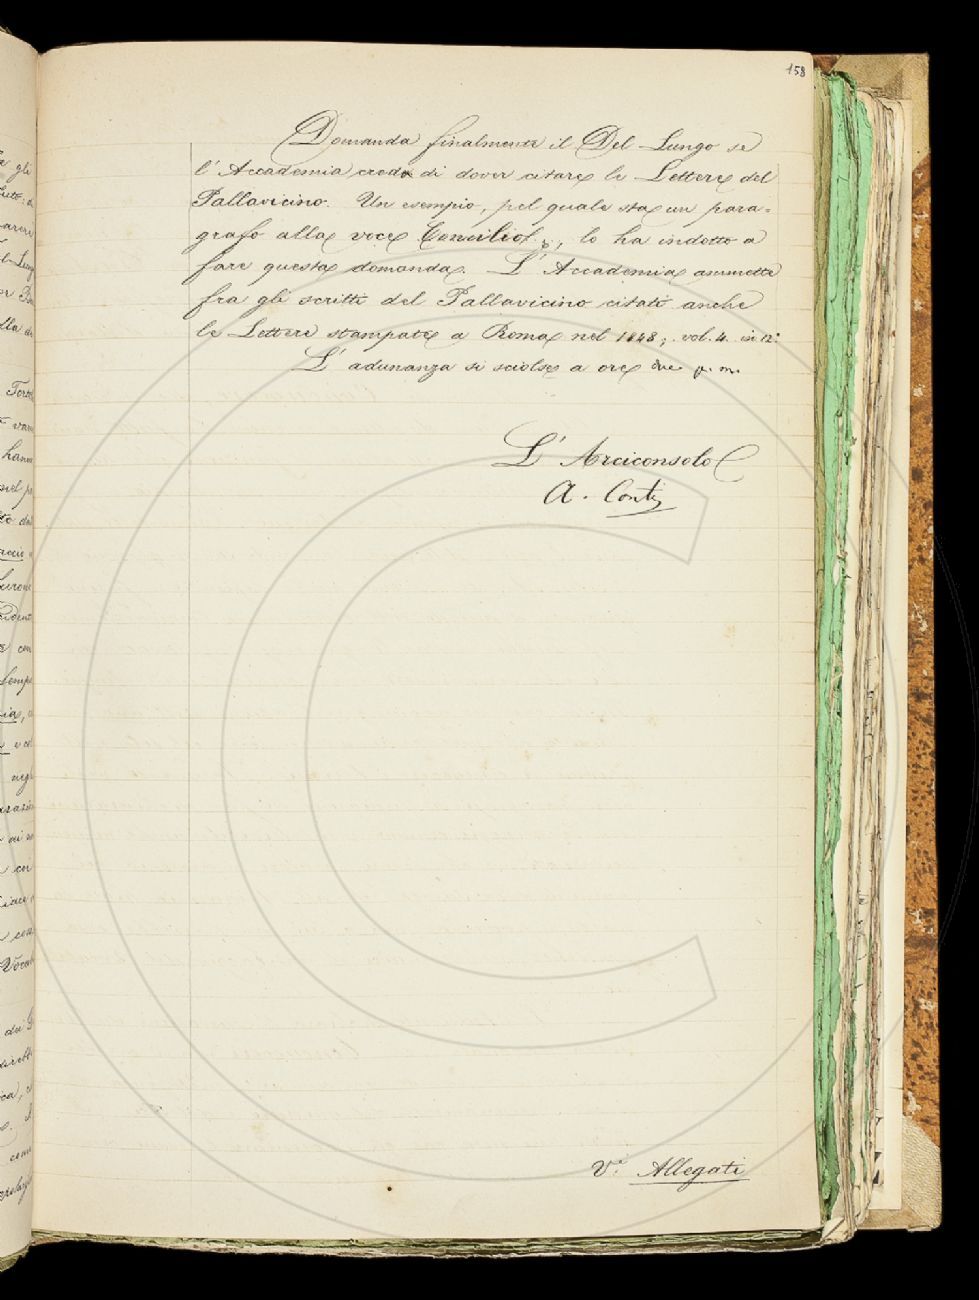 158
Domanda finalmente il Del Lungo se
l'Accademia creda di dover citare le Lettere del
Pallavicino. Un esempio, pel quale sta un para=
grafo alla voce Concilio, lo ha indotto a
fare questa domanda. L'Accademia ammette
fra gli scritti del Pallavicino citati anche
le Lettere stampate a Roma nel 1848; vol. 4. in 12°.
L'adunanza si sciolse a ore due p. m.
L'Arciconsolo
A. Conti
V. Allegati